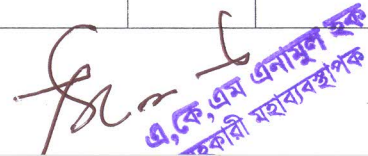 এ,কে,এম এনামুল হক
সহকারী মহাব্যবস্থাপক